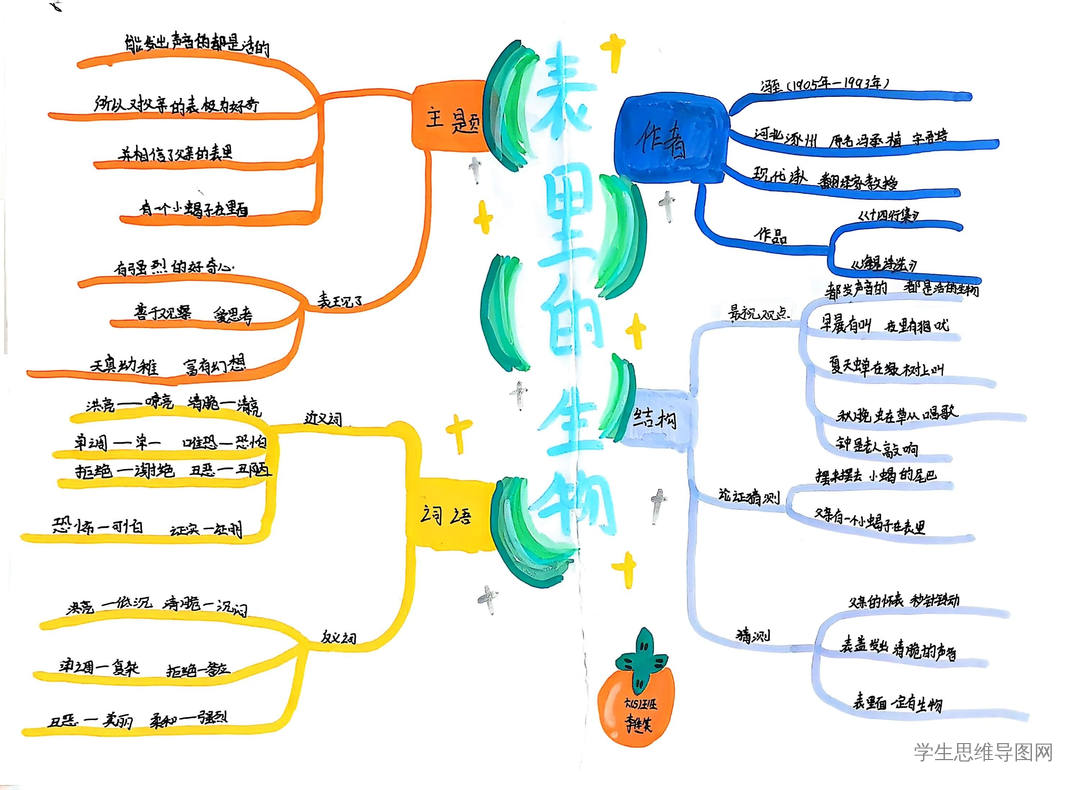 表里的生物
主题
能发出声音的都是活的
所以对父亲的表极为好奇
并相信了父亲的表里
有一个小蝎子在里面
表现了
有强烈的好奇心
善于观察 爱思考
天真幼稚 富有幻想
词语
近义词
洪亮一嘹亮 清脆一清亮
单调一单一 唯恐一恐怕
拒绝一谢绝 丑恶一丑陋
恐怖一可怕 证实一证明
反义词
洪亮一低沉 清脆一沉闷
单调一复杂 拒绝一答应
丑恶一美丽 柔和一强烈
作者
冯至(1905年一1993年)
河北涿州 原名冯承植 字君培
现代诗人 翻译家教授
作品
《十四行集》
结构
最初观点
都发声音的 都是活的生物
早晨有叫 夜里有狗吠
夏天蝉在绿树上叫
秋晚虫在草丛唱歌
钟是人敲响
论证猜测
摆来摆去 小蝎的尾巴
父亲有一个小蝎子在表里
猜测
父亲的怀表 秒针转动
表盖发出清脆的声音
表里面一定有生物
学生思维导图网